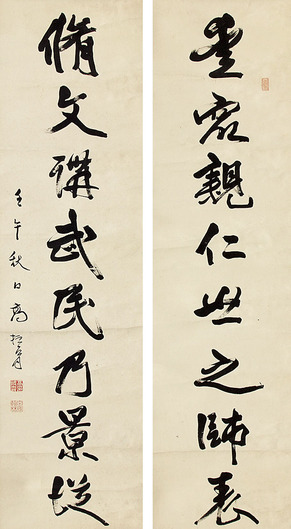 愛衆親仁世之師表
脩文講武民乃景從
壬午秋日高振霄